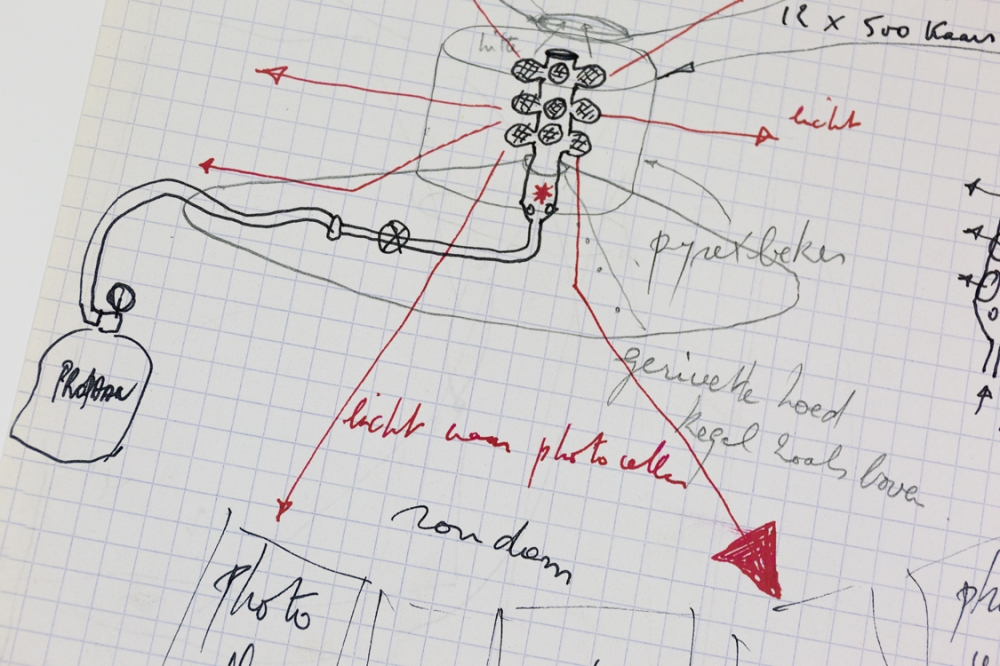 12 x 500 Kaars
licht
pyrexbeker
PROPAAN
gerivette hoed
kegel zoals boven
licht naar photocellen
rondom
photo